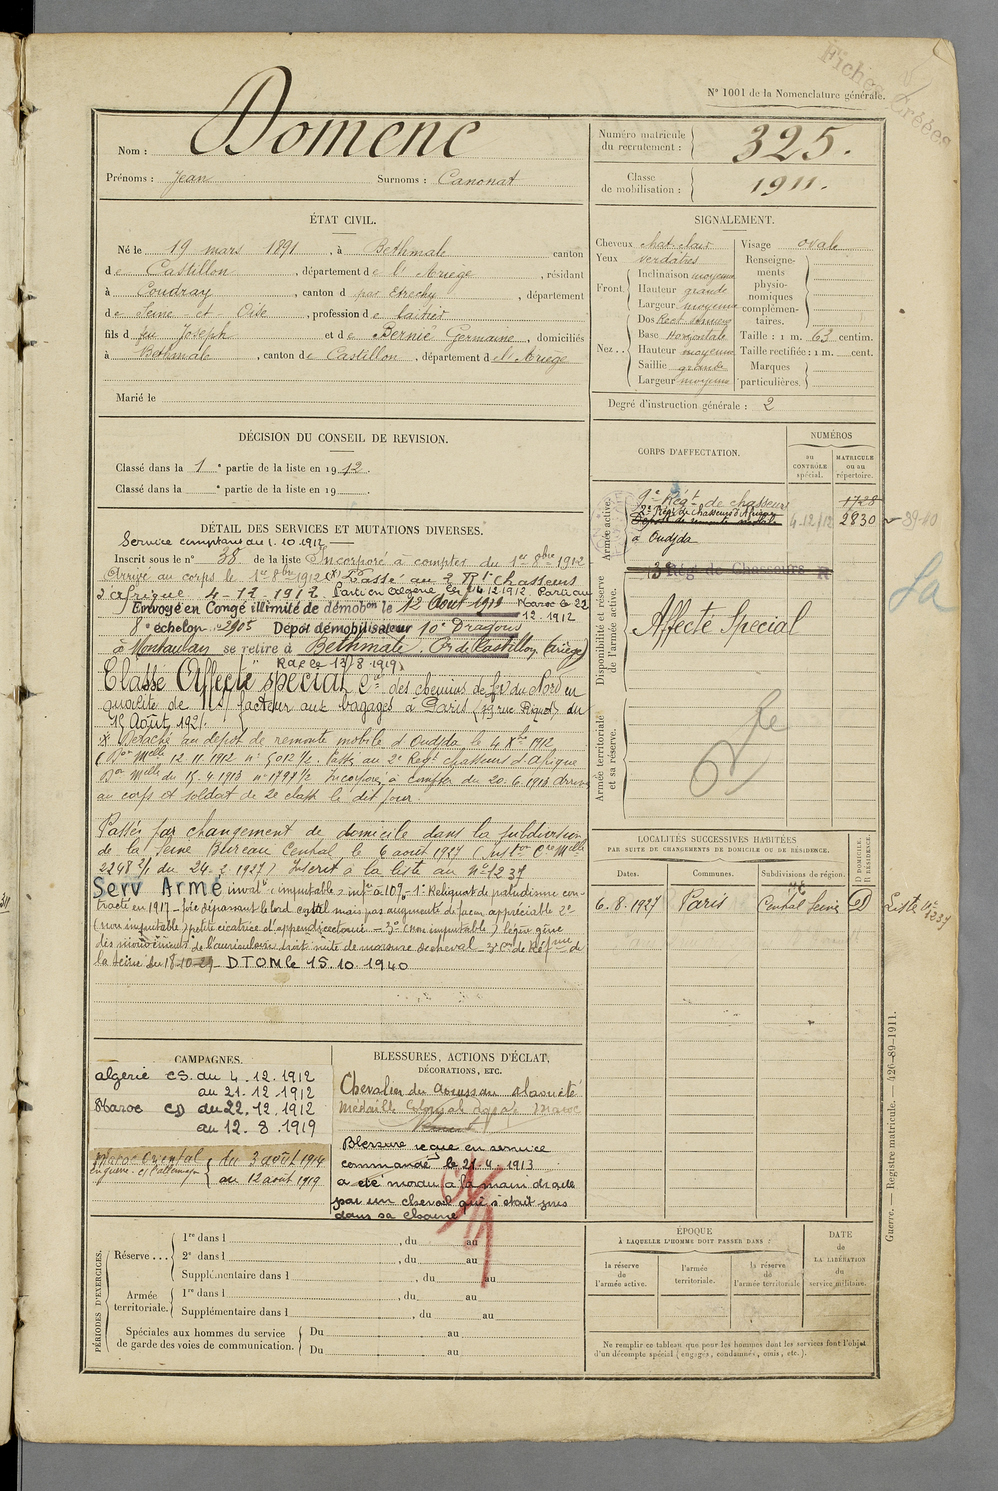 Fiches créées
N° 1001 de la Nomenclature générale.
Nom : Domenc
Prénoms : Jean Surnoms : Canonat
Numéro matricule du recrutement : 325.
Classe de mobilisation : 1911.
ÉTAT CIVIL.
Né le 19 mars 1891, à Bethmale canton
de Castillon, département de l'Ariège, résidant
à Coudray, canton d par Etrechy, département
de Seine et Oise, profession de laitier
fils d feu Joseph et de Bernié Germaine, domiciliés
à Bethmale, canton de Castillon, département de l'Ariège
Marié le
SIGNALEMENT.
Cheveux chat. clair
Yeux verdâtres
Front. Inclinaison moyenne
Hauteur grande
Largeur moyenne
Nez. Dos Rect.
Base Horizontale
Hauteur moyenne
Saillie grande
Largeur moyenne
Visage ovale
Renseignements physionomiques complémentaires.
Taille : 1 m. 63 centim.
Taille rectifiée : 1 m. cent.
Marques particulières.
Degré d'instruction générale : 2
DÉCISION DU CONSEIL DE REVISION.
Classé dans la 1e partie de la liste en 1912.
Classé dans la e partie de la liste en 19
DÉTAIL DES SERVICES ET MUTATIONS DIVERSES.
Service comptant du 1.10.1912
Inscrit sous le n° 38 de la liste Incorporé à compter du 1er 8bre 1912
Arrivé au corps le 1er 8bre 1912 (X) Passé au 2 Rt Chasseurs
d'afrique 4-12-1912. Parti en Algérie le 4.12.1912. Parti au Maroc le 22.12.1912
Envoyé en Congé illimité de démobon le 12 Août 1919
8e échelon n° 2905 Dépôt démobilisateur 10e Dragons
à Montauban se retire à Bethmale, Con de Castillon (Ariège)
RdC le 13/8/1919
Classé Affecté spécial Cie des chemins de fer du Nord en
qualité de facteur aux bagages à Paris (19 rue Riquet) du
15 Août 1921.
X Détaché au dépôt de remonte mobile d'Oudjda le 4 Xbre 1912
(Don Melle 12.11.1912 n° 5012 1/2. Passé au 2e Regt chasseurs d'Afrique
Don Melle du 15.4.1913 n° 1791 1/2 Incorporé à compter du 20.6.1913 arrivé
au corps et soldat de 2e classe le dit jour.
Passé par changement de domicile dans la subdivision
de la Seine Bureau Central le 6 août 1927 (Inston Cre Melle
2248 3/1 du 24.2.1927) Inscrit à la liste au N° 1237
Serv Armé inval. (imputable) infre à 10% - 1° Reliquat de paludisme con-
tracté en 1917 - foie dépassant le bord costal mais pas augmenté de façon appréciable 2°
(non imputable) petite cicatrice d'appendicectomie - 3° (non imputable) légère gêne
des mouvements de l'auriculaire droit suite de morsure de cheval - 3e Con de Réfme de
la Seine du 18-10-29 - DTOM le 15.10.1940
CORPS D'AFFECTATION.
NUMÉROS
au CONTRÔLE spécial.
MATRICULE ou au répertoire.
Armée active.
9e Régt de chasseurs 1728
2e Régt de Chasseurs d'Afrique 4-12/12 2830
Dépôt de remonte mobile
à Oudjda
39-40
Disponibilité et réserve de l'armée active.
13e Régt de Chasseurs
Affecté Spécial
Sa
Armée territoriale et sa réserve.
LOCALITÉS SUCCESSIVES HABITÉES
PAR SUITE DE CHANGEMENTS DE DOMICILE OU DE RÉSIDENCE.
Dates.
Communes.
Subdivisions de région.
D DOMICILE. R RÉSIDENCE.
6.8.1927 Paris Central Seine D
Liste N° 1237
CAMPAGNES.
Algérie CS. du 4.12.1912
au 21.12.1912
Maroc CD du 22.12.1912
au 12.8.1919
Maroc Oriental du 3 août 1914
en guerre c/ l'allemagne au 12 août 1919
BLESSURES, ACTIONS D'ÉCLAT, DÉCORATIONS, ETC.
Chevalier du Ouissam Alaouite
Médaille Coloniale agrafe Maroc
Blessure reçue en service
commandé le 21.4.1913
a été mordu à la main droite
par un cheval qui s'était pris
dans sa chaine
PÉRIODES D'EXERCICES.
Réserve... 1re dans l , du au
2e dans l , du au
Supplémentaire dans l , du au
Armée territoriale. 1re dans l , du au
Supplémentaire dans l , du au
Spéciales aux hommes du service de garde des voies de communication. Du au
Du au
ÉPOQUE
À LAQUELLE L'HOMME DOIT PASSER DANS :
la réserve de l'armée active.
l'armée territoriale.
la réserve de l'armée territoriale
DATE DE LA LIBÉRATION du service militaire.
Ne remplir ce tableau que pour les hommes dont les services font l'objet
d'un décompte spécial (engagés, condamnés, omis, etc.).
Guerre. — Registre matricule. — 426-89-1911.